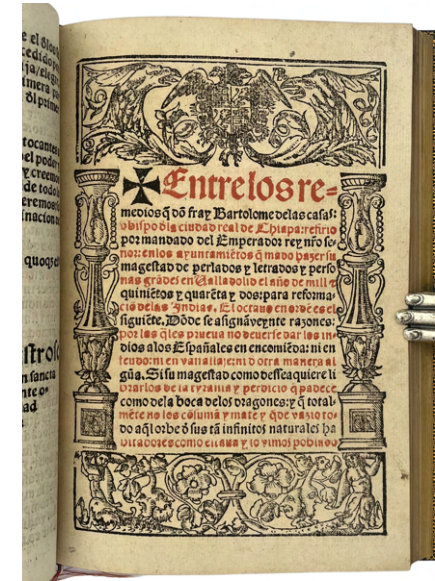 e el
cedido po
ija/elegir
rimera pa
ol prime
tocantes
el poder y
y creemo
de todo l
eremos
inacion u
quoqz el
stros
n sancta
nte o
ad
✠ Entre los re-
medios q̃ dõ fray Bartolome de las casas:
obispo d̓la ciudad real de Chiapa: refirio
por mandado del Emperador rey nr̃o se-
ñor: en los ayuntamiẽtos q̃ mado hazer su
magestad de perlados y letrados y perso
nas grãdes en Valladolid el año de mill τ
quiniẽtos y quarẽta y dos: para reforma
ciõ de las Yndias. El octauo en ordẽ es el
siguiẽte. Dõde se asignã veynte razones:
por las q̃les prueua no deuerse dar los in
dios a los Españoles en encomiẽda: ni en
feudo: ni en vassallaje: ni d̓ otra manera al
gũa. Si su magestad como dessea quiere li
brarlos de la tyrania y perdiciõ q̃ padecẽ
como de la boca de los dragones: y q̃ total
mẽte no los cõsumã y matẽ y q̃de vazio to
do aq̃l orbe d̓ sus tã infinitos naturales ha
bitadores como estaua y lo vimos poblado